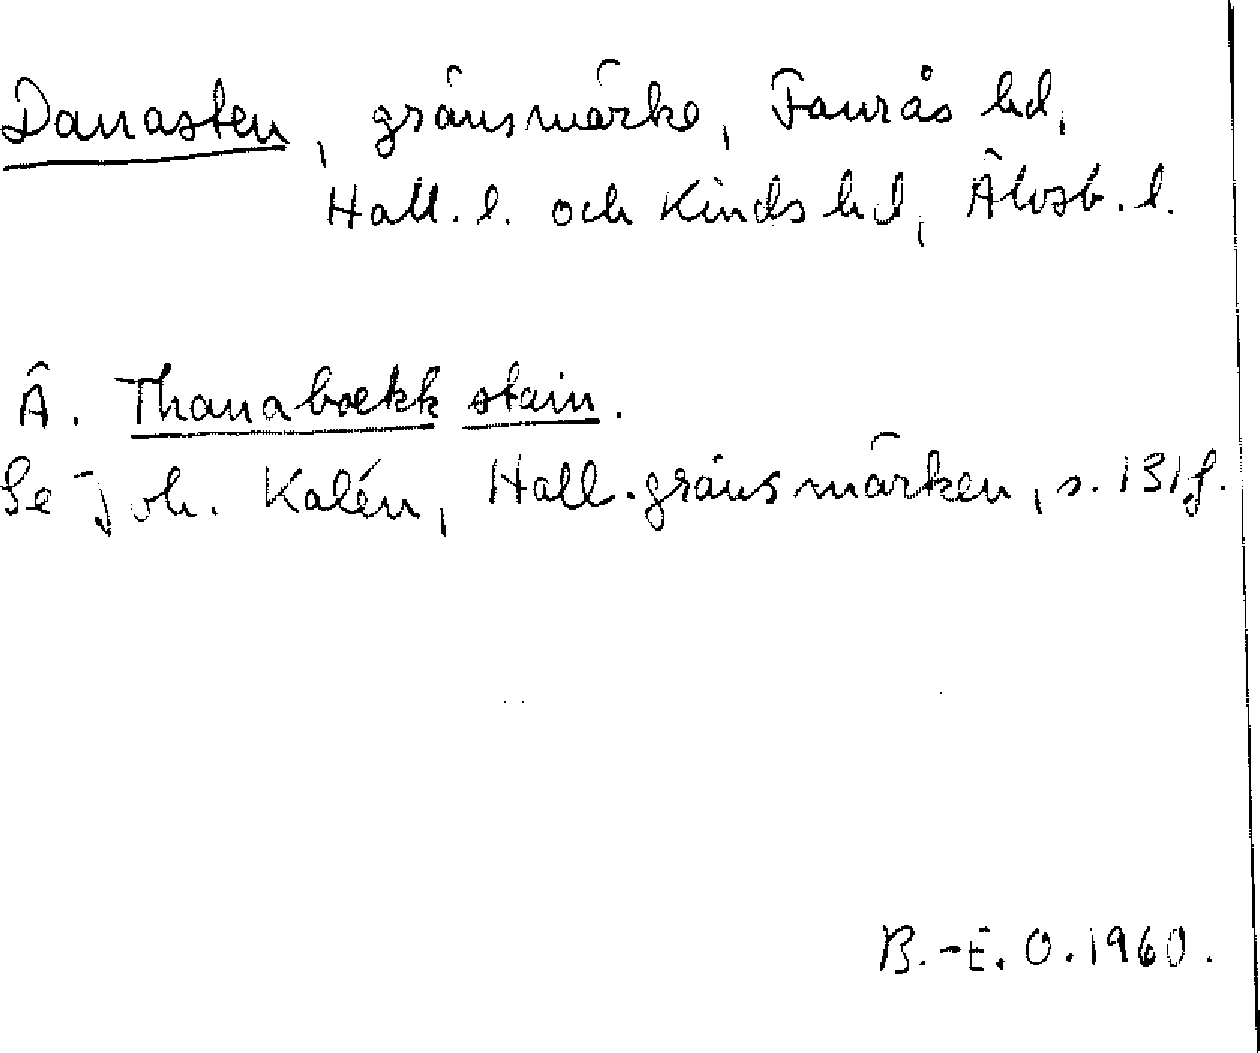 Danasten, gränsmärke, Faurås hd,
Hall. l. och Kinds hd, Älvsb. l.
Ä. Thanabækk stain.
Se Joh. Kalén, Hall. gränsmärken, s. 131 f.
B.-E. O. 1960.